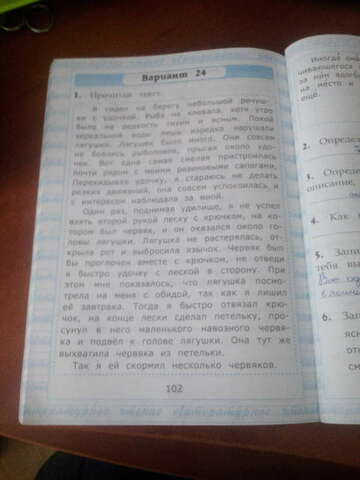 Вариант 24
1. Прочитай текст.
Я сидел на берегу небольшой речуш-
ки с удочкой. Рыба не клевала, хотя утро
было на редкость тихим и ясным. Покой
зеркальной воды лишь изредка нарушали
лягушки. Лягушек было много. Они совсем
не боялись рыболовов, прыгая около удо-
чек. Вот одна самая смелая пристроилась
почти рядом с моими резиновыми сапогами.
Перекидывая удочку, я стараюсь не делать
резких движений, она совсем успокоилась и
с интересом наблюдала за мной.
Один раз, поднимая удилище, я не успел
взять второй рукой леску с крючком, на ко-
тором был червяк, и он оказался около го-
ловы лягушки. Лягушка не растерялась, от-
крыла рот и выбросила язычок. Червяк было
бы проглочен вместе с крючком, не отведи
я быстро удочку с леской в сторону. При
этом мне показалось, что лягушка посмо-
трела на меня с обидой, так как я лишил
её завтрака. Тогда я быстро отвязал крю-
чок, на конце лески сделал петельку, про-
сунул в него маленького навозного червя-
ка и подвёл к голове лягушки. Она тут же
выхватила червяка из петельки.
Так я ей скормил несколько червяков.
102
литературное чтение литературное чтение
Иногда она
чивающегося
за ним вдого
на место и
ещё.
2. Определ
3. Опреде
описание,
4. Как
5. Запи
тебя вы
6. Запи
ясн
отн
см